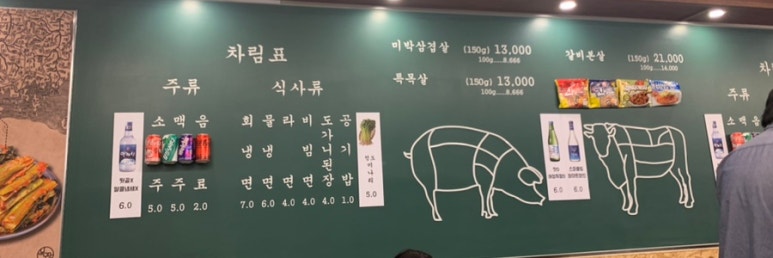 차림표
주류
소주 5.0
맥주 5.0
음료 2.0
식사류
회냉면 7.0
물냉면 6.0
라면 4.0
비빔면 4.0
도가니된장 4.0
공기밥 1.0
미나리
5.0
6.0
미박삼겹살 (150g) 13,000
100g.....8,666
특목살 (150g) 13,000
100g.....8,666
갈비본살 (150g) 21,000
100g.....14,000
6.0 6.0
차
주류
소 맥
주
5.0
6.0